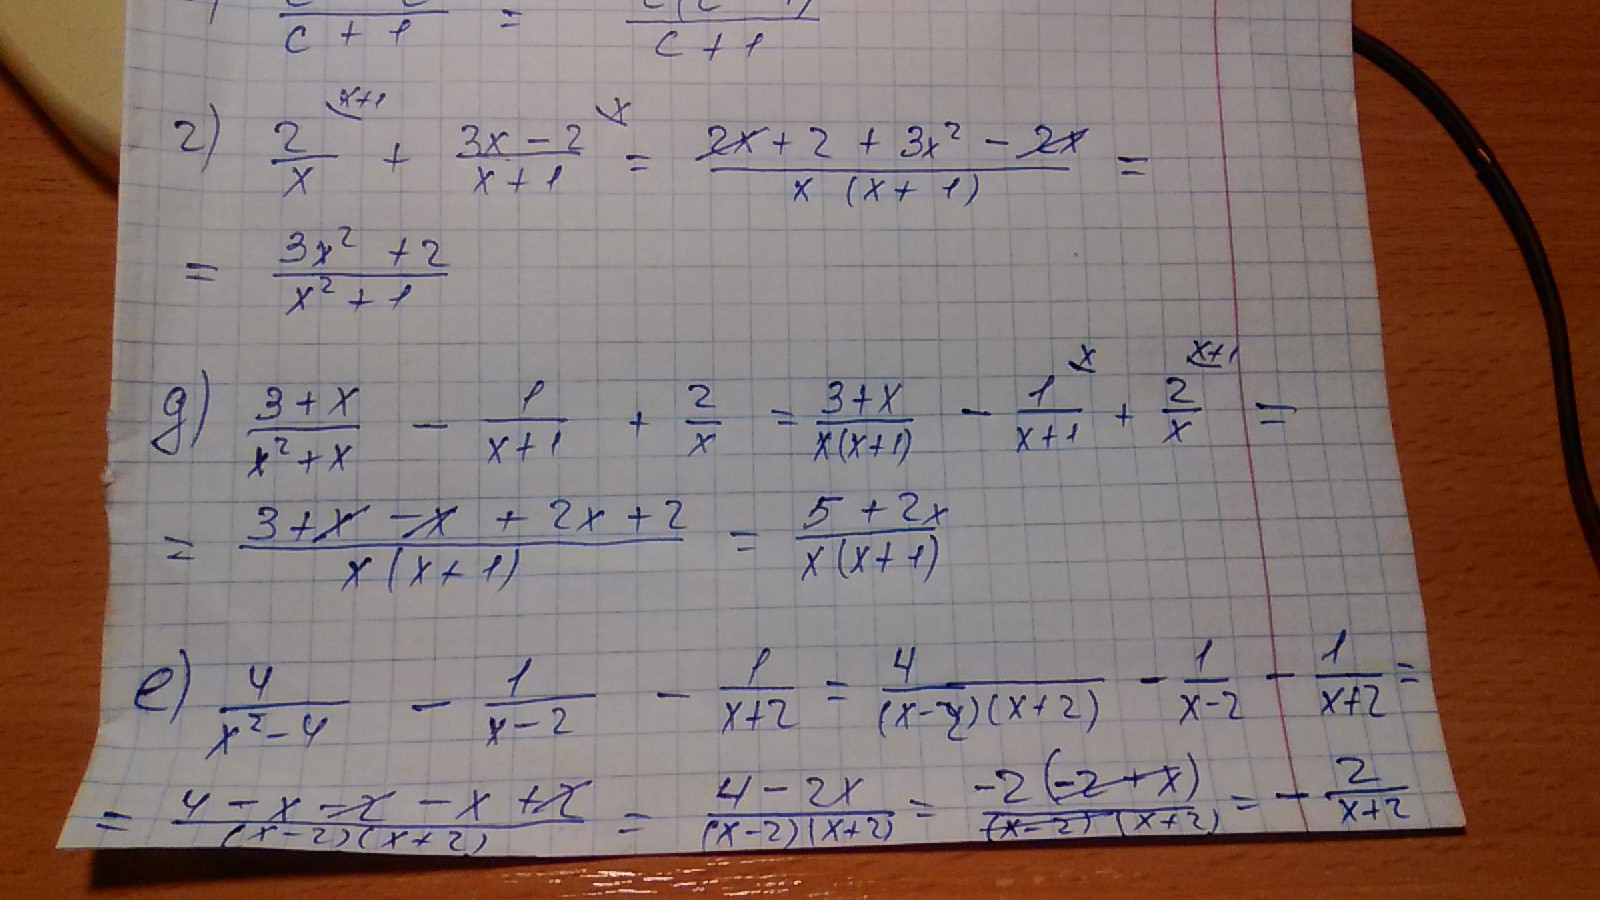 c + 1 = c + 1
г) 2/x (x+1) + (3x - 2)/(x + 1) (x) = (2x + 2 + 3x² - 2x)/(x (x + 1)) =
= (3x² + 2)/(x² + 1)
д) (3 + x)/(x² + x) - 1/(x + 1) + 2/x = (3 + x)/(x(x+1)) - 1/(x+1) (x) + 2/x (x+1) =
= (3 + x - x + 2x + 2)/(x(x+1)) = (5 + 2x)/(x(x+1))
е) 4/(x² - 4) - 1/(x - 2) - 1/(x+2) = 4/((x-2)(x+2)) - 1/(x-2) - 1/(x+2) =
= (4 - x - 2 - x + 2)/((x-2)(x+2)) = (4 - 2x)/((x-2)(x+2)) = -2(-2+x)/((x-2)(x+2)) = - 2/(x+2)